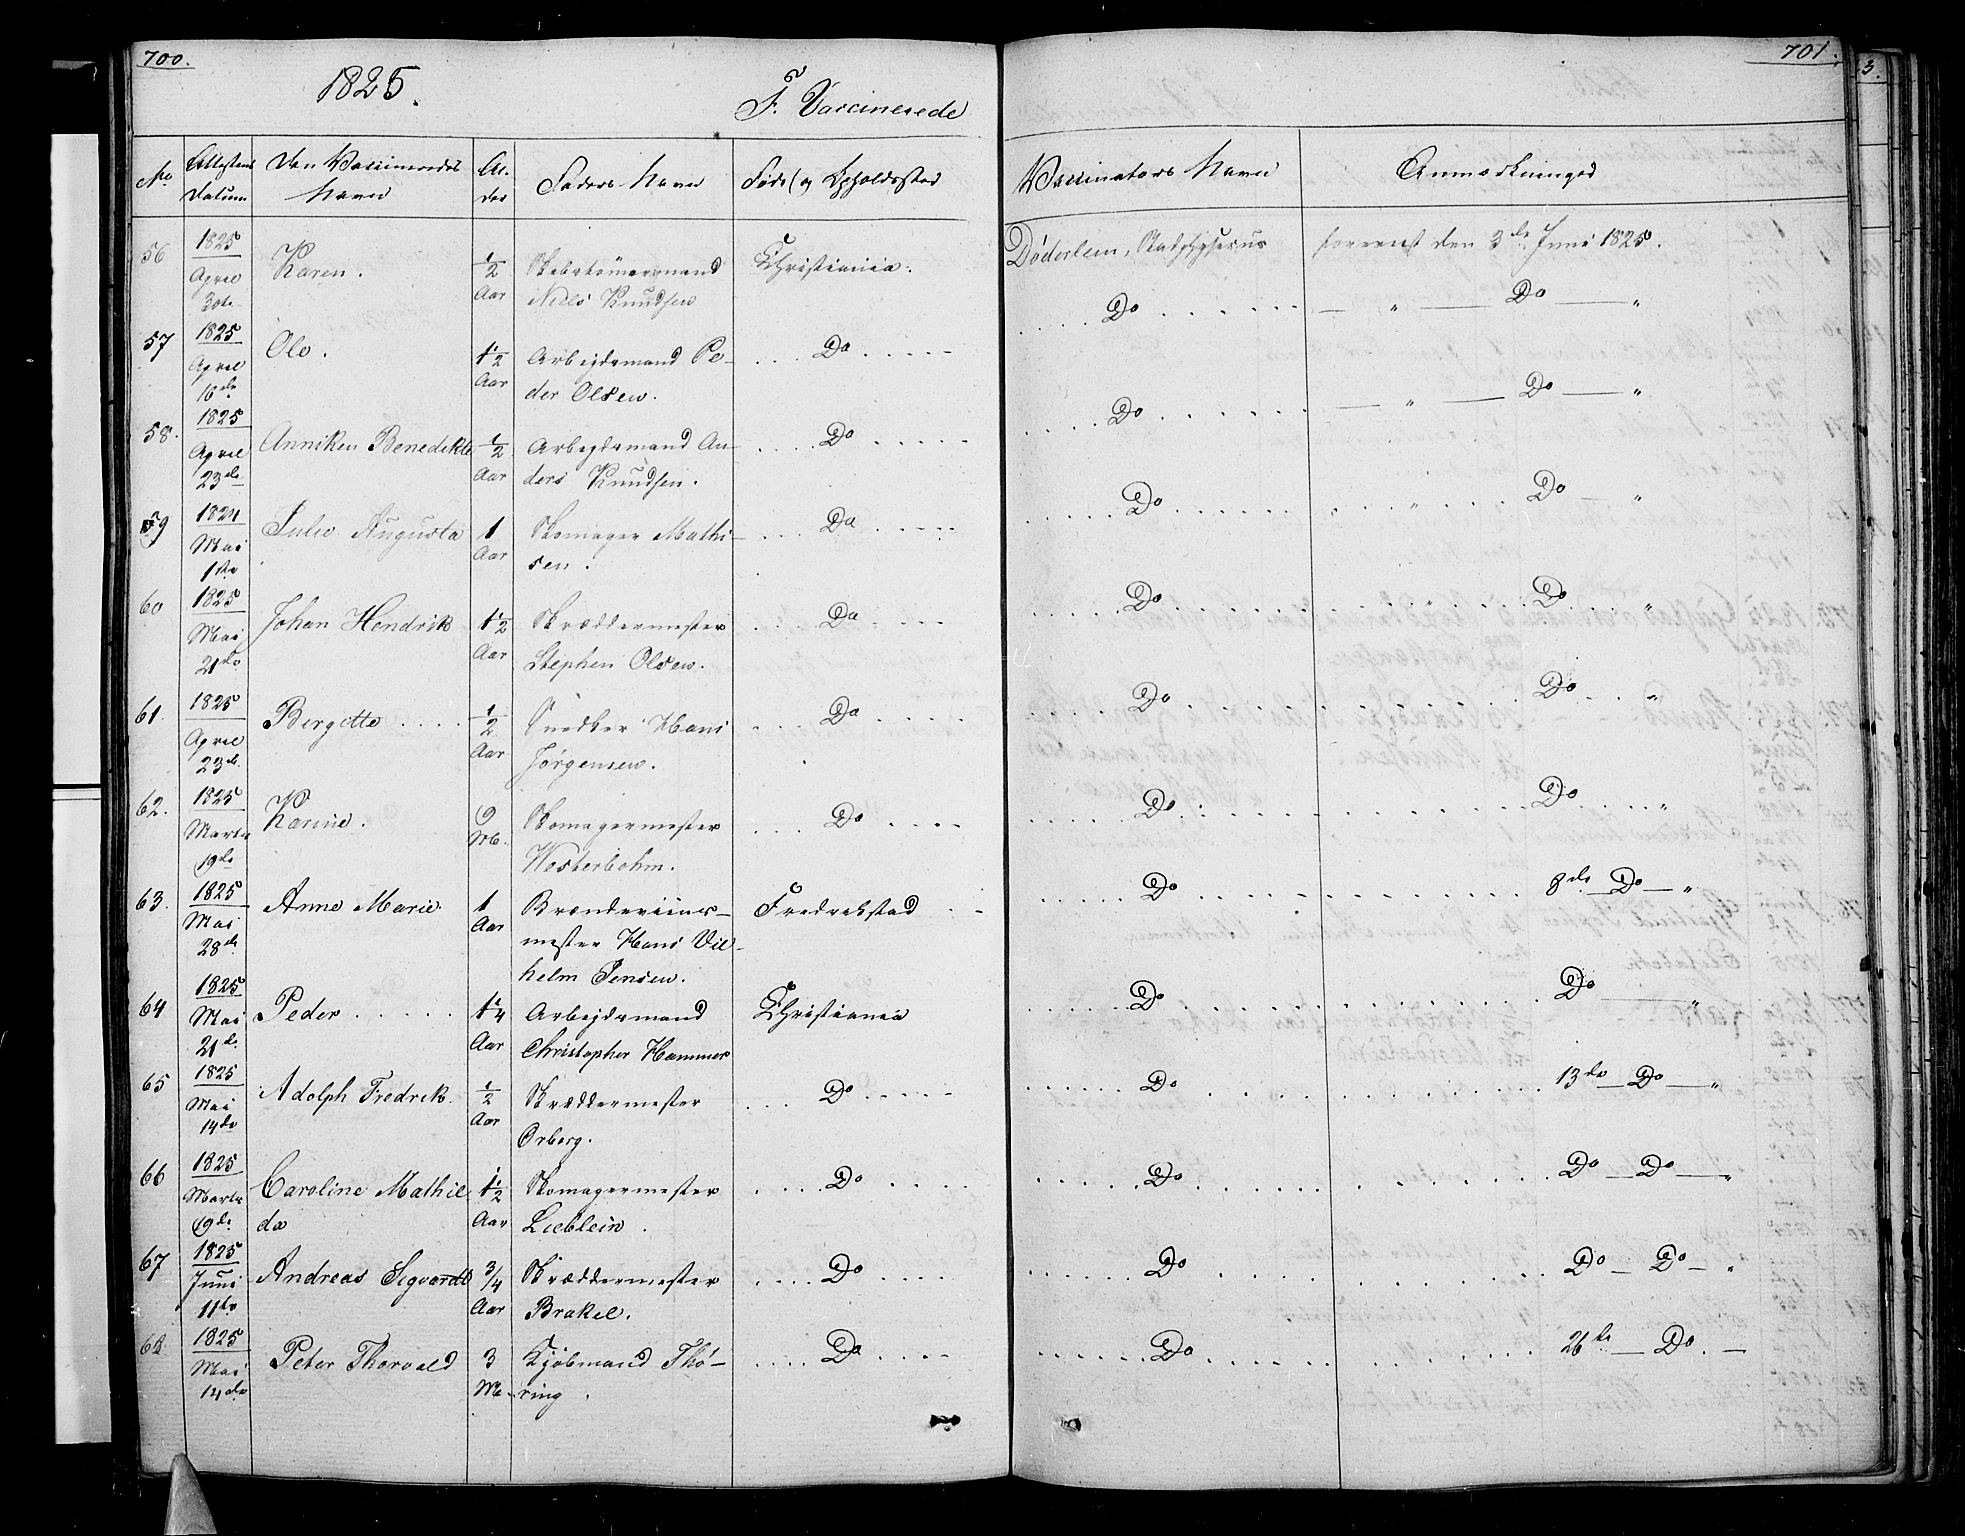 700.
1825.
F. Vaccinerede
No Attestens Datum Den Vaccineredes Navn Al- der Faders Navn Føde- og Opholdssted
56 1825 April 30te Karen. 1/2 Aar Skibstømmermand Niels Knudsen Christiania.
57 1825 April 16de Ole. 1 1/2 Aar Arbejdsmand Pe- der Olsen. Do
58. 1825 April 23de Anniken Benedikte 1/2 Aar Arbejdsmand An- ders Knudsen. Do
59 1824 Mai 1ste Julie Augusta 1 Aar Skomager Mathi- sen. Do
60 1825 Mai 21de Johan Hendrik 1 1/2 Aar Skræddermester Stephen Olsen. Do
61. 1825 April 23de Bergitte 1/2 Aar Snedker Hans Jørgensen. Do
62. 1825 Marts 19de Karine. 9 Mb. Skomagermester Westerbohm. Do
63. 1825 Mai 28de Anne Marie. 1 Aar Brændeviins- mester Hans Vil- helm Jensen. Fredrikstad
64 1825 Mai 21de Peder 1 1/4 Aar Arbejdsmand Christopher Hammer Christiania
65 1825 Mai 14de Adolph Fredrik. 1/2 Aar Skræddermester Orberg. Do
66 1825 Marts 19de Caroline Mathil- da 1 1/2 Aar Skomagermester Lieblein. Do
67 1825 Juni 11te Andreas Sigvardt 3/4 Aar Skræddermester Brakel. Do
68 1825 Mai 14de Peter Thorvald 3 Kjøbmand Thø- ring. Do
701.
Vaccinators Navn Anmærkninger
Døderlein, Stadphysicus foreviist den 3de Juni 1825.
Do — " — Do — "
Do — " — Do — "
Do " Do — "
Do " Do "
Do Do "
Do Do "
Do 8de — Do — "
Do Do — "
Do 13de — Do — "
Do Do — Do — "
Do Do — Do — "
Do 26de — Do. —
3.